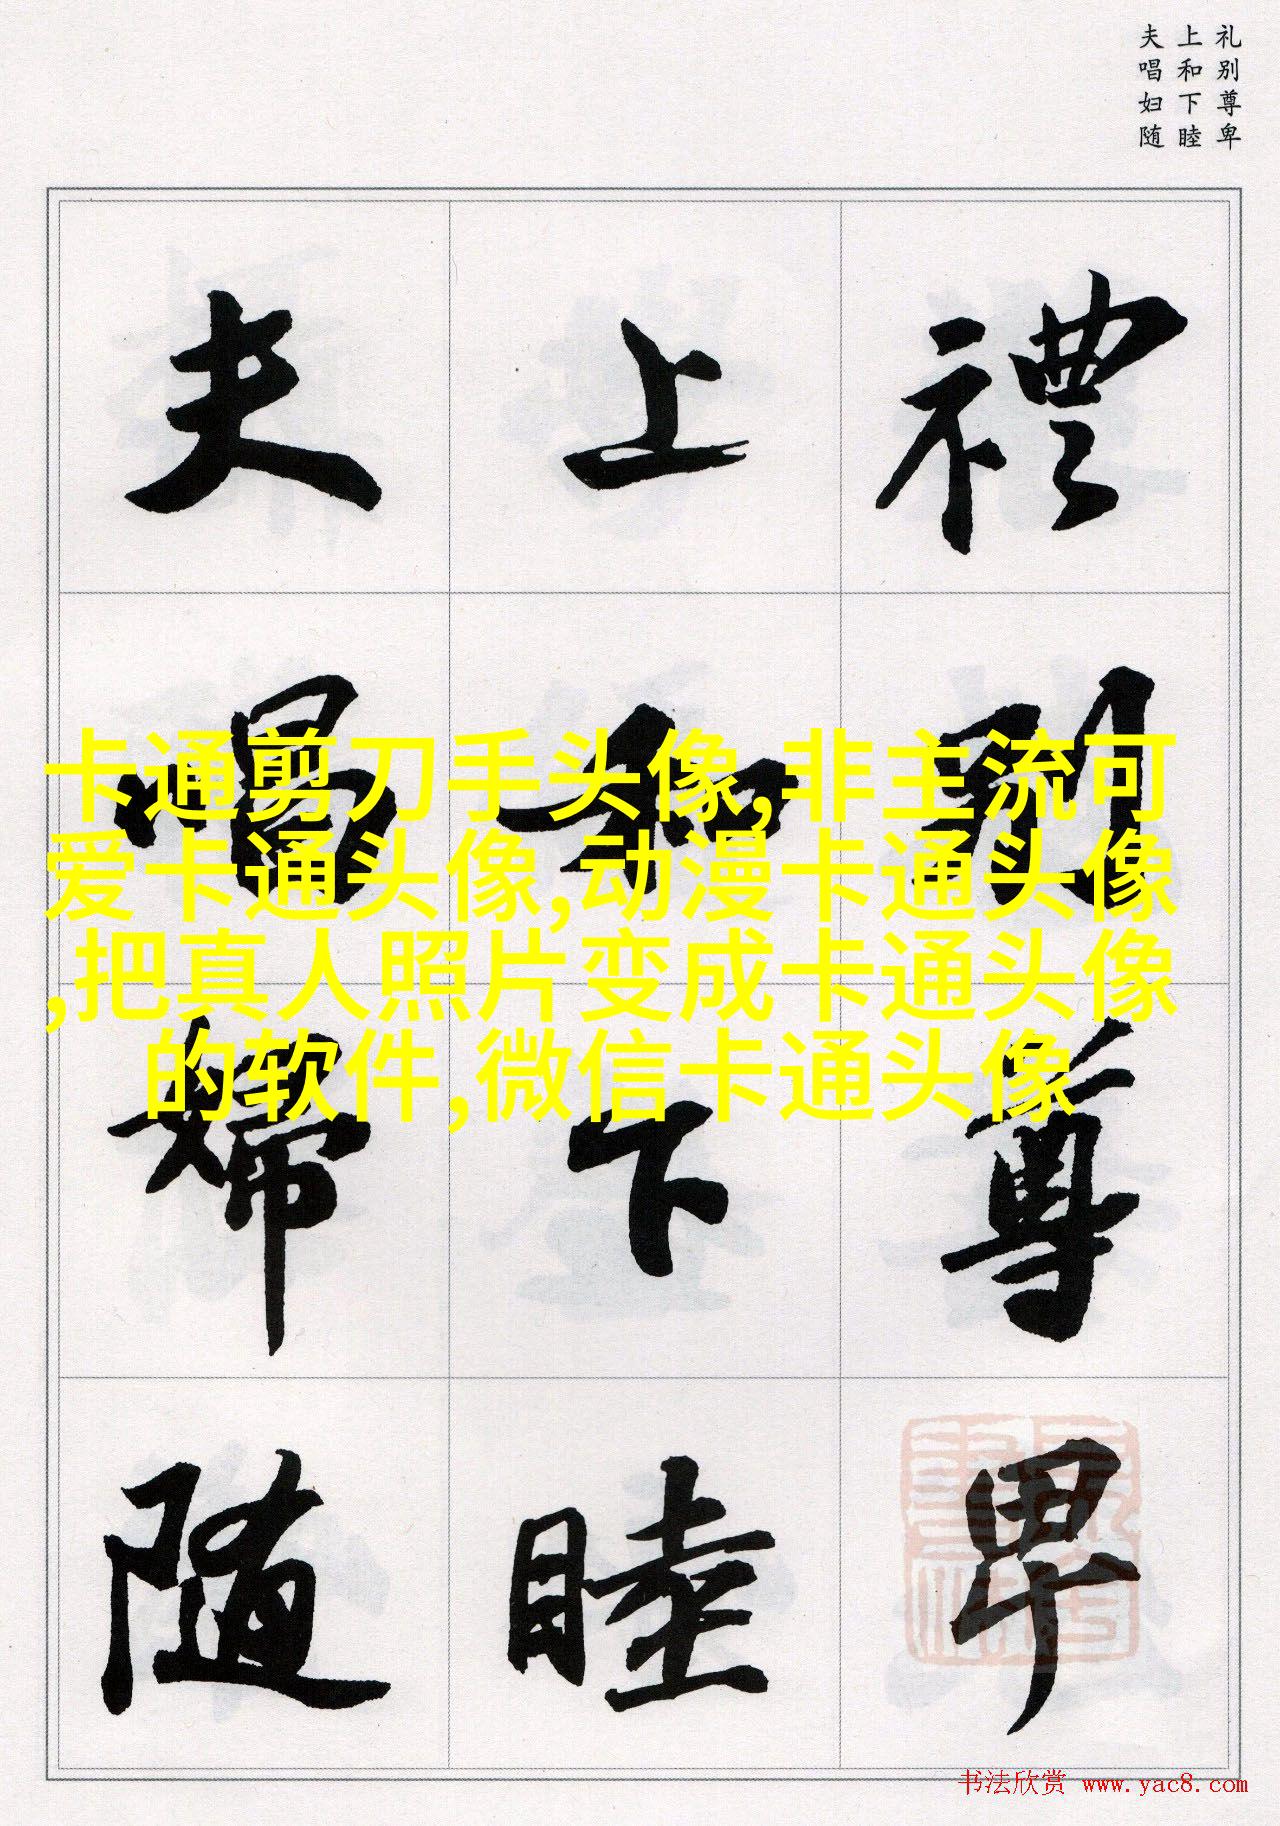 礼别尊卑
上和下睦
夫唱妇随
禮別尊卑
上和下睦
夫唱婦随
卡通剪刀手头像,非主流可
爱卡通头像,动漫卡通头像
,把真人照片变成卡通头像
的软件,微信卡通头像
书法欣赏 www.yac8.com